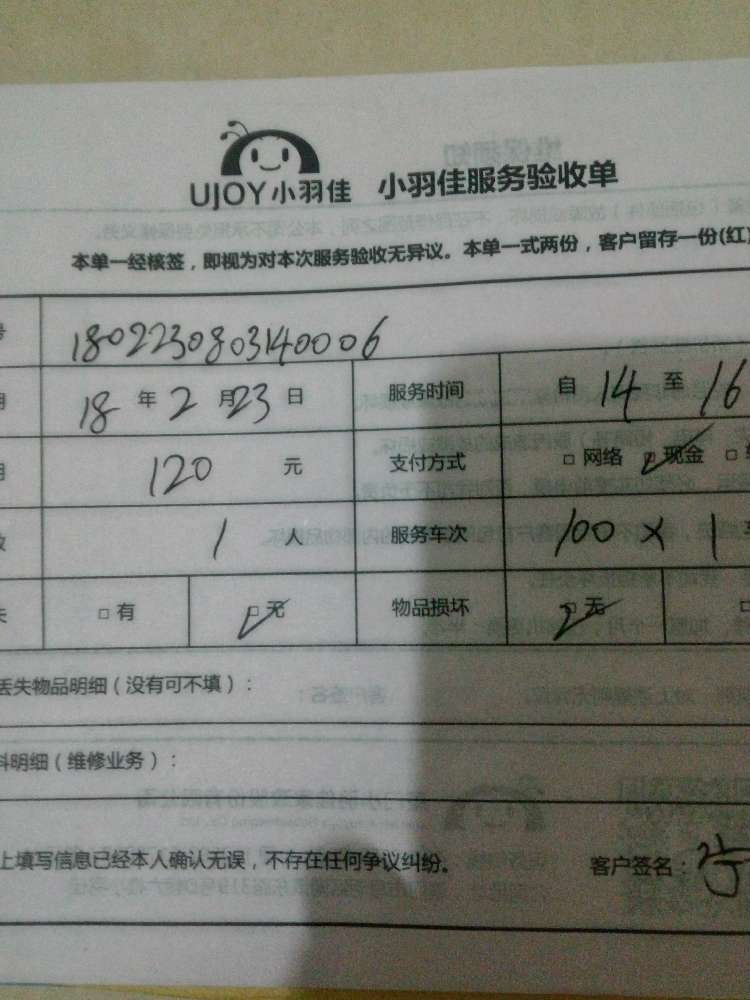 UJOY小羽佳 小羽佳服务验收单
本单一经核签，即视为对本次服务验收无异议。本单一式两份，客户留存一份(红)
号 1802230803140006
期 18 年 2 月 23 日 服务时间 自 14 至 16
用 120 元 支付方式 □ 网络 □ 现金 □
数 1 人 服务车次 100 × 1
失 □ 有 □ 无 物品损坏 □ 无 □
丢失物品明细（没有可不填）：
料明细（维修业务）：
上填写信息已经本人确认无误，不存在任何争议纠纷。 客户签名：